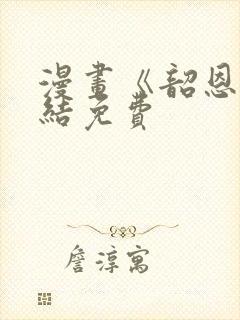 漫畫《韶恩
結免費
詹淳寓